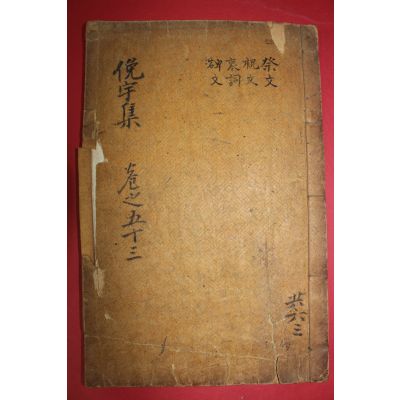 祭文
祝文
哀詞
碑文
俛宇集
卷之五十三
共六三